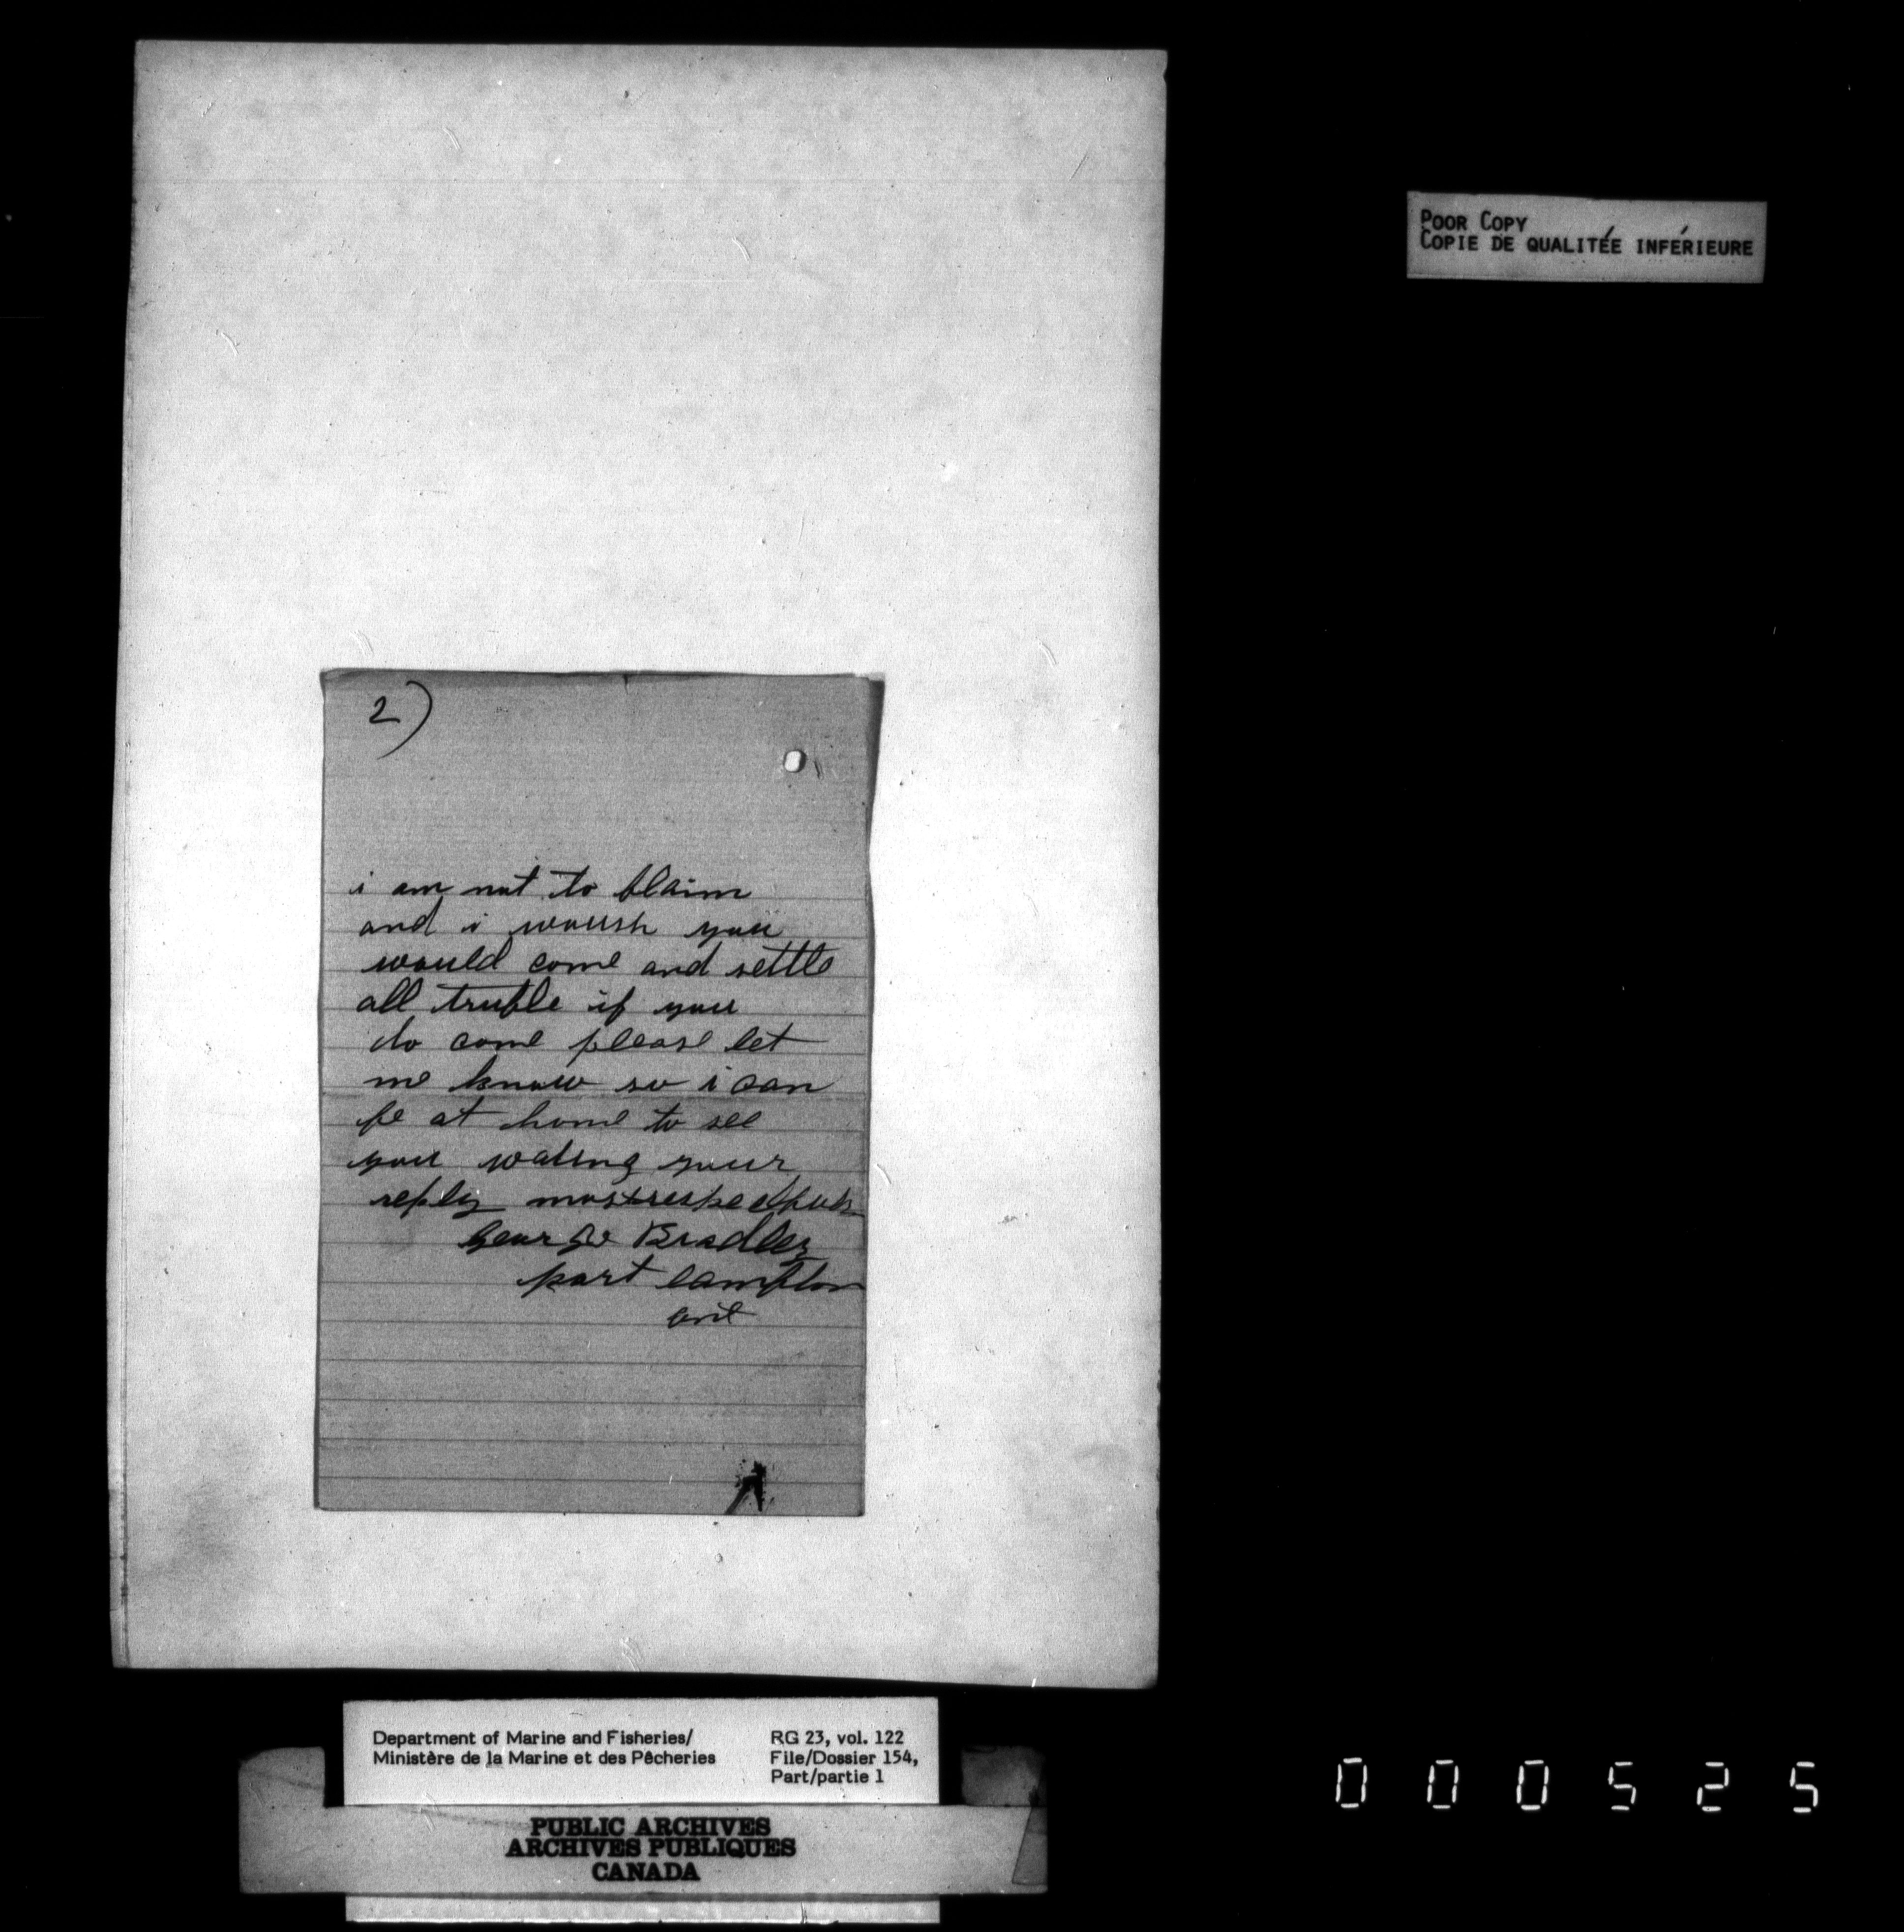 POOR COPY
COPIE DE QUALITÉE INFÉRIEURE
2)
i am not to blaim
and i woush you
would come and settle
all truble if you
do come please let
me know so i can
be at home to see
you wating your
reply most
George Bradley
port lambton
ont
Department of Marine and Fisheries/
Ministère de la Marine et des Pêcheries
RG 23, vol. 122
File/Dossier 154,
Part/partie 1
PUBLIC ARCHIVES
ARCHIVES PUBLIQUES
CANADA
000525